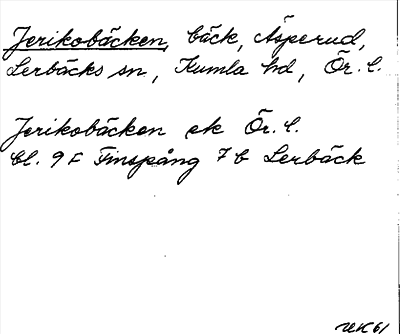 Jerikobäcken, bäck, Äsperud,
Lerbäcks sn, Kumla hd, Ör. l.
Jerikobäcken ek Ör. l.
bl. 9 F Finspång 7 b Lerbäck